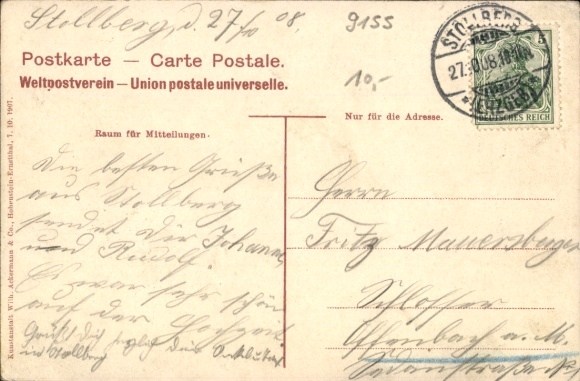 Stollberg, d. 27/10 08.
9155
10,-
Postkarte — Carte Postale.
Weltpostverein — Union postale universelle.
STOLLBERG
27.10.08.
(ERZGEB.)
5
DEUTSCHES REICH
Raum für Mitteilungen.
Nur für die Adresse.
Die besten Grüße
aus Stollberg
sendet Dir Johannes
und Rudolf.
Es war sehr schön
auf der Hochzeit.
Grüßt Dich
in Stollberg
Herrn
Fritz Mauersberger
Schlosser
Offenbach a. M.
Sedanstraße
Kunstanstalt Wilh. Ackermann & Co., Hohenstein-Ernstthal, 7. 10. 1907.